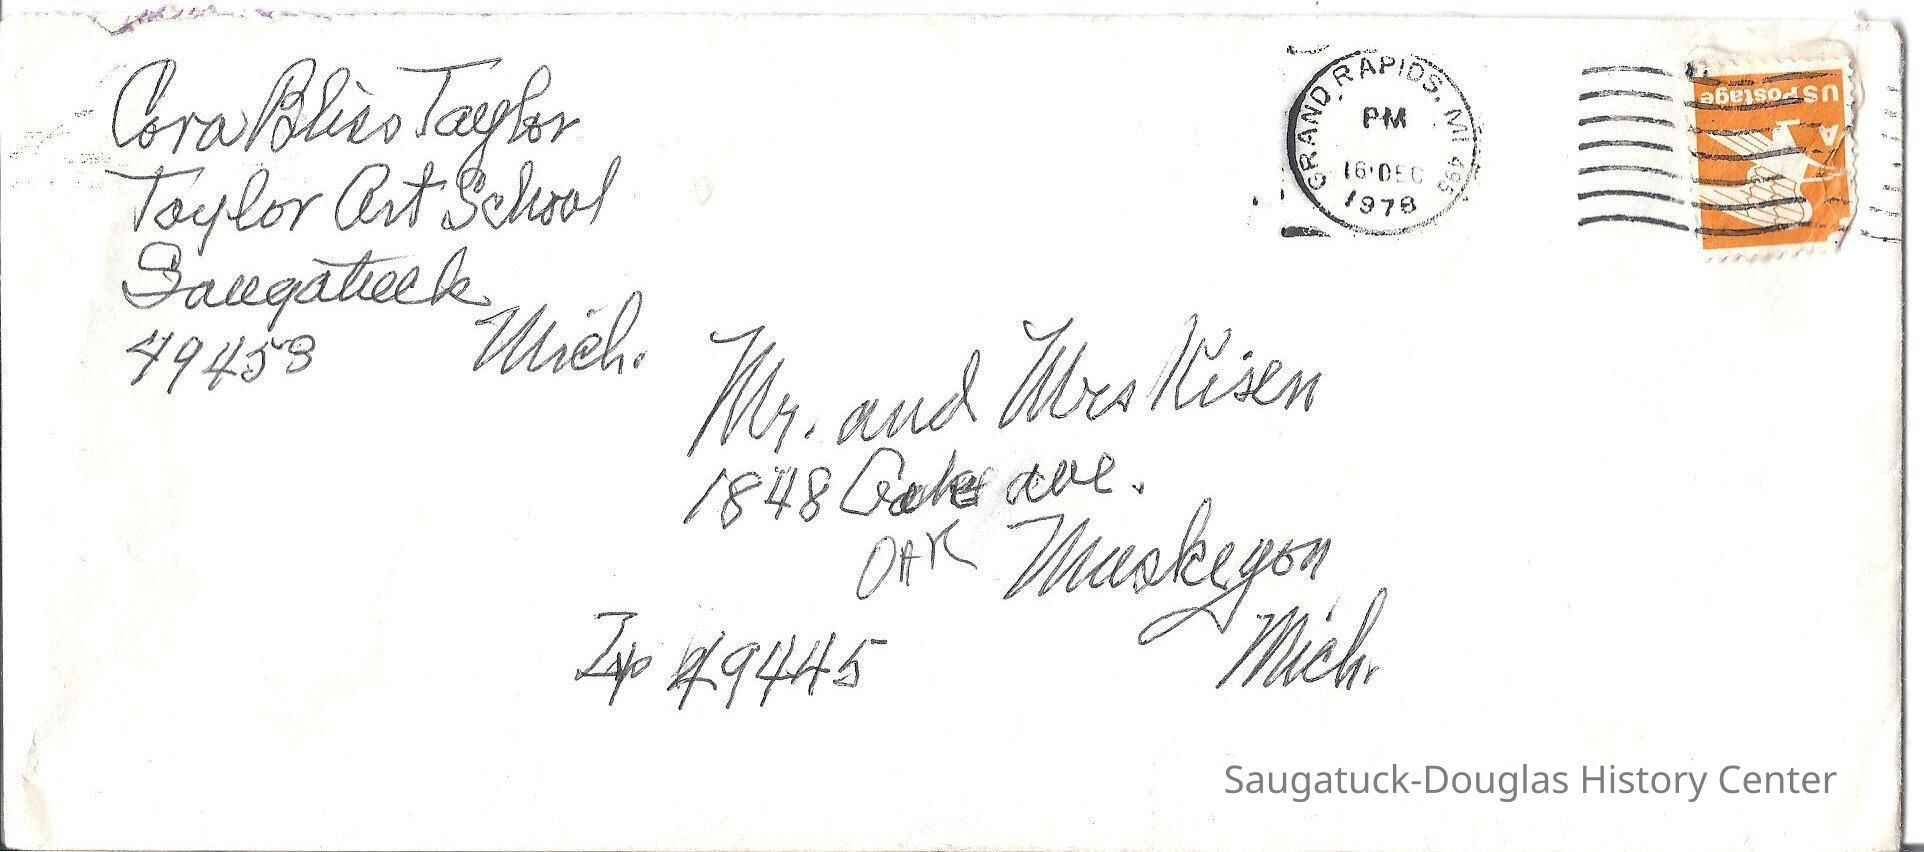 Cora Bliss Taylor
Taylor Art School
Saugatuck
49453 Mich.
GRAND RAPIDS, MI 495
PM
16 DEC
1978
US Postage
A
Mr. and Mrs Kisen
1848 ave.
OAK
Muskegon
Mich.
Zip 49445
Saugatuck-Douglas History Center